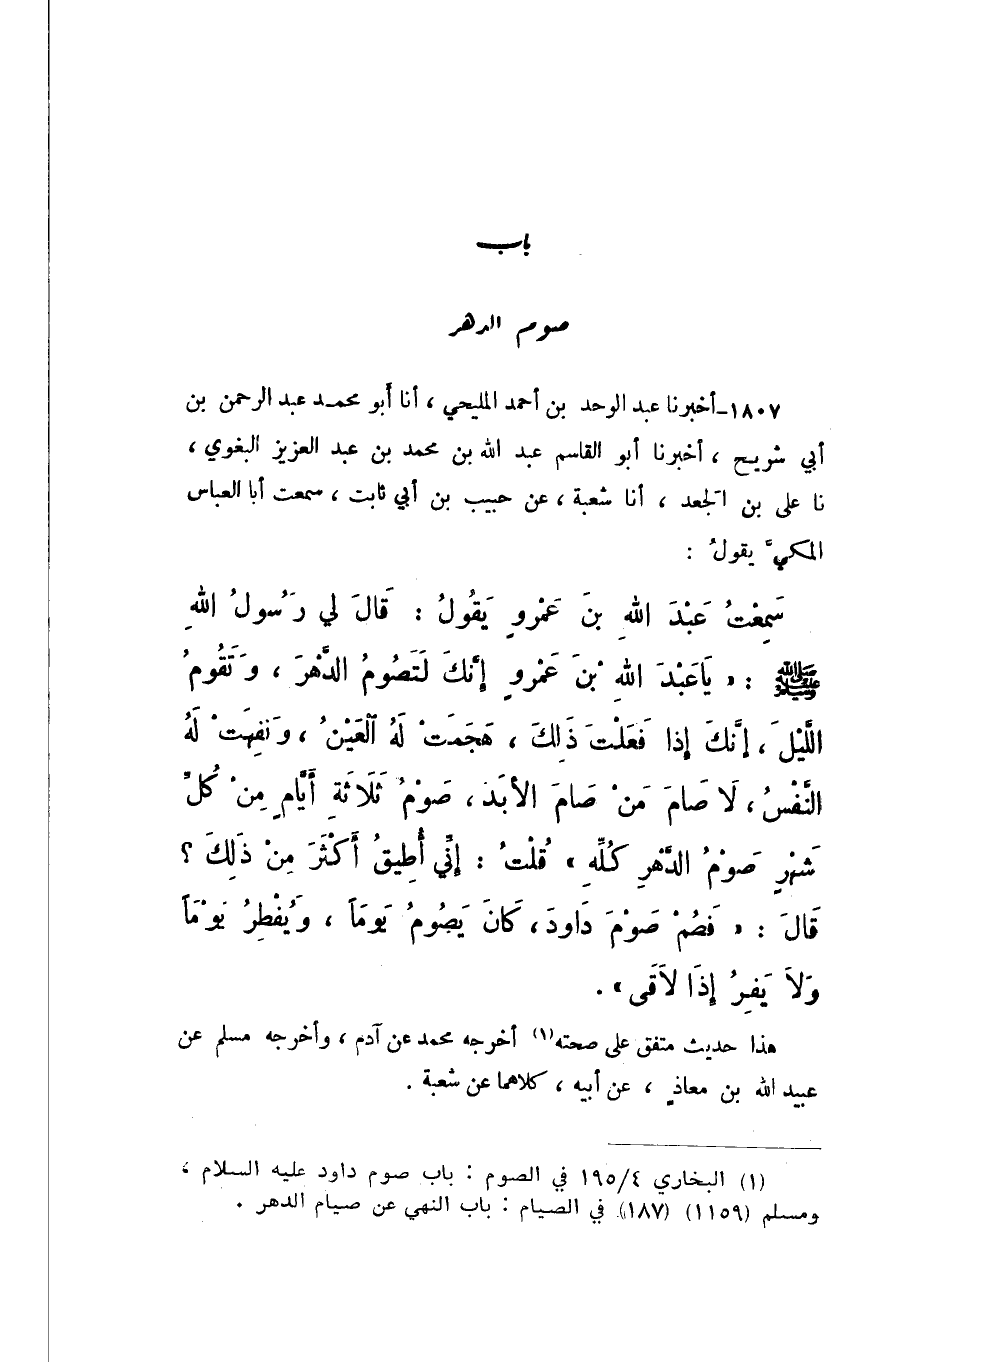 باب
صوم الدهر
١٨٠٧ـ أخبرنا عبد الوحد بن أحمد المليحي ، أنا أَبو محمـد عبد الرحمن بن
أبي شريـح ، أخبرنا أبو القاسم عبد الله بن محمد بن عبد العزيز البغوي ،
نا علي بن الجعد ، أنا شعبة ، عن حبيب بن أبي ثابت ، سمعت أبا العباس
المكيَّ يقولُ :
سَمِعْتُ عَبْدَ اللهِ بنَ عَمْرٍو يَقُولُ : قَالَ لي رَسُولُ اللهِ
ﷺ : « يَاعَبْدَ اللهِ بْنَ عَمْرٍو إِنَّكَ لَتَصُومُ الدَّهْرَ ، وَتَقُومُ
اللَّيْلَ ، إِنَّكَ إِذا فَعَلْتَ ذَلِكَ ، هَجَمَتْ لَهُ الْعَيْنُ ، وَنَفِهَتْ لَهُ
النَّفْسُ ، لَا صَامَ مَنْ صَامَ الأبَدَ ، صَوْمُ ثَلَاثَةِ أَيَّامٍ مِنْ كُلِّ
شَهْرٍ صَوْمُ الدَّهْرِ كُلِّهِ » قُلْتُ : إِنِّي أُطِيقُ أَكْثَرَ مِنْ ذَلِكَ ؟
قَالَ : « فَصُمْ صَوْمَ دَاودَ ، كَانَ يَصُومُ يَومَاً ، وَيُفْطِرُ يَوْمَاً
وَلاَ يَفِرُ إِذَا لاَقَى » .
هذا حديث متفق على صحته(١) أخرجه محمد عن آدم ، وأخرجه مسلم عن
عبيد الله بن معاذٍ ، عن أبيه ، كلاهما عن شعبة .
(١) البخاري ١٩٥/٤ في الصوم : باب صوم داود عليه السلام ،
ومسلم (١١٥٩) (١٨٧) في الصيام : باب النهي عن صيام الدهر .